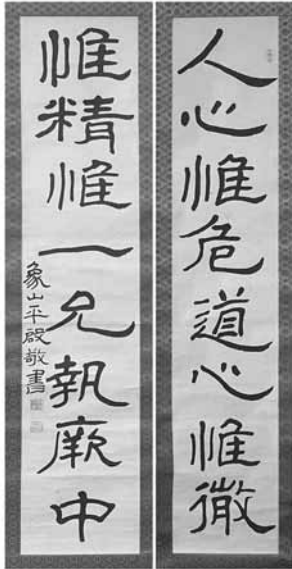 人心惟危道心惟微
惟精惟一允執厥中
象山平啟敬書